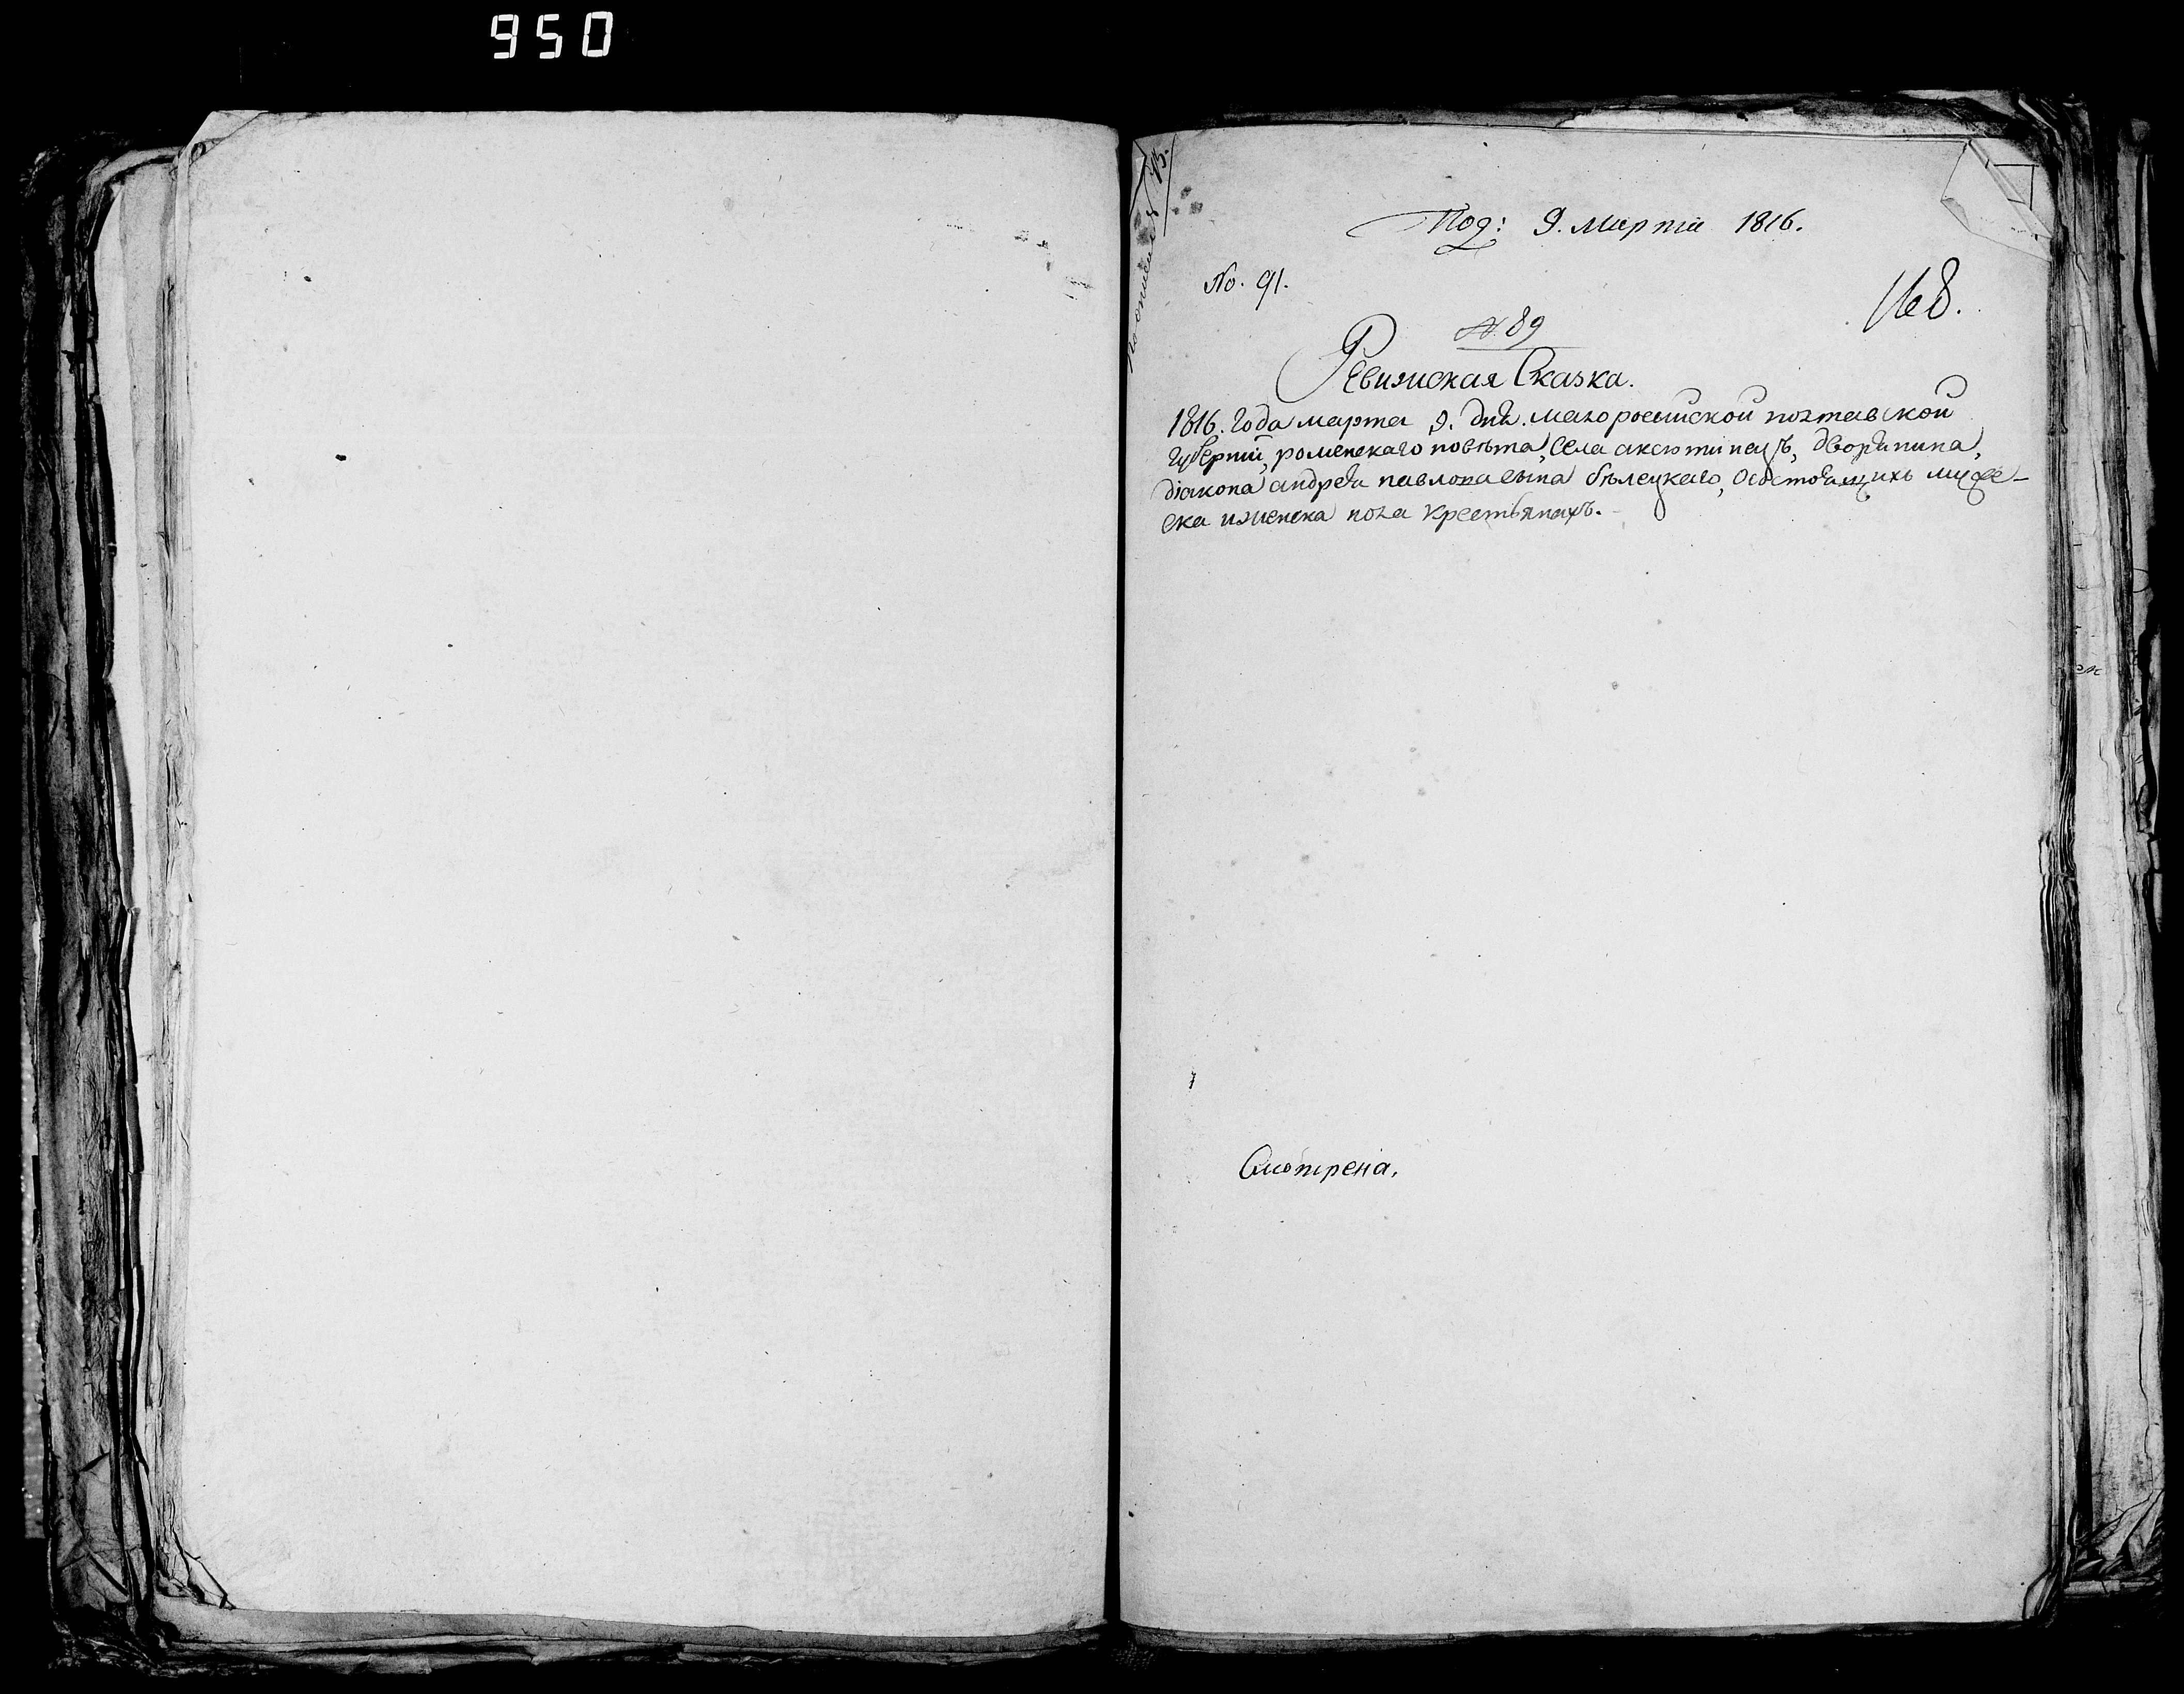 950
Под: 9. марта 1816.
No. 91.
N. 89
Ревижская Сказка.
1816. Года марта 9. дня. малоросийской полтавской
губернии, роменскаго повѣта, села аксютинецъ, дворянина,
діакона андрея павлова сына бѣлецкаго, осостоящихъ мужe-
ска иженска пола крестьянахъ.
Смотрена,